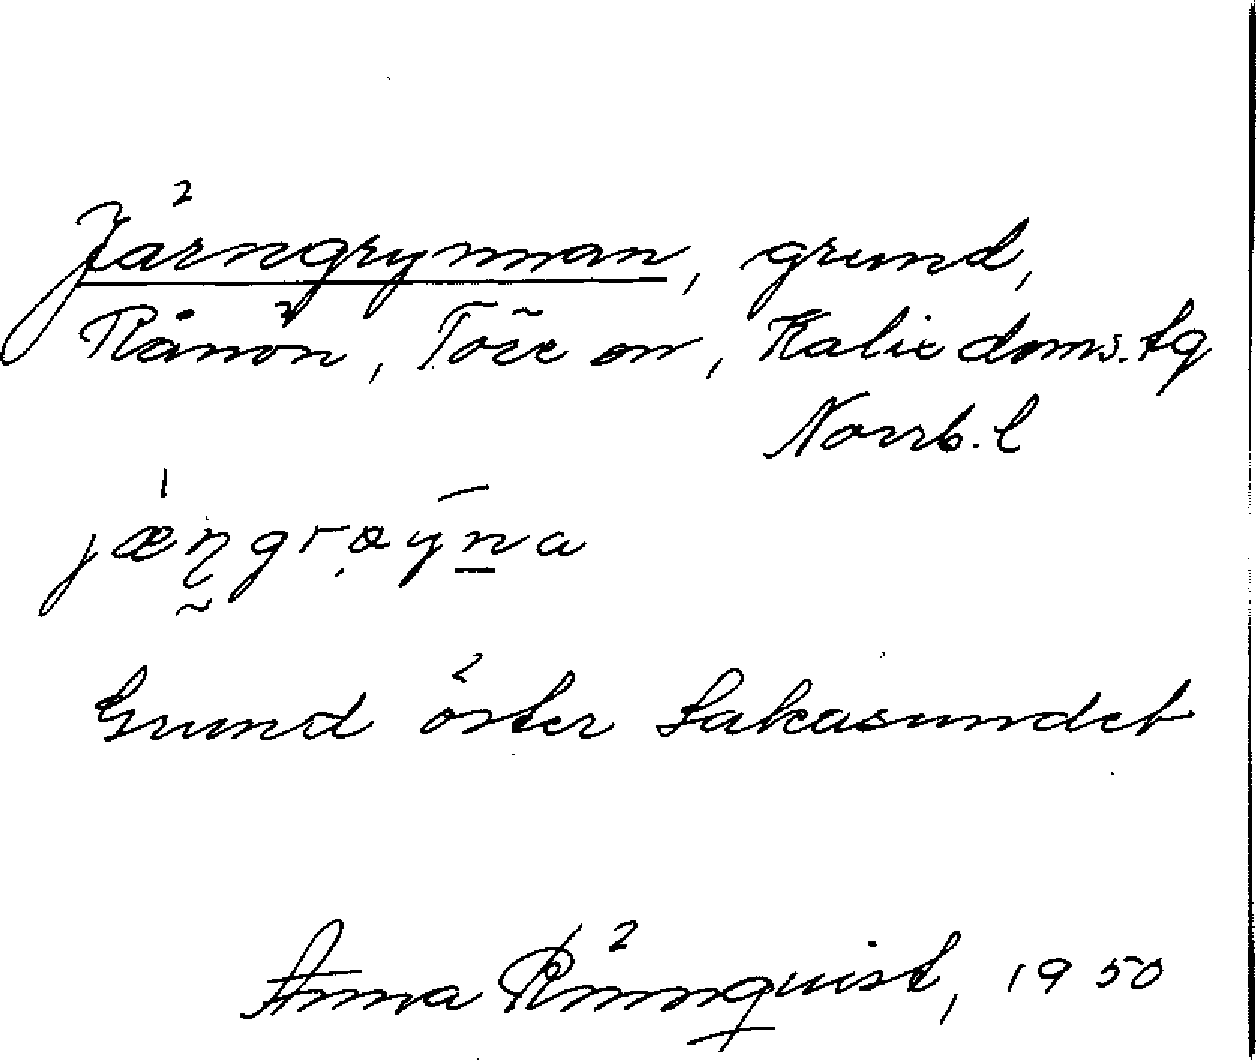 Järngrynnan, grund,
Rånön, Töre sn, Kalix doms.tg
Norrb. l
Grund öster Lakasundet
Anna Rönnquist, 1950